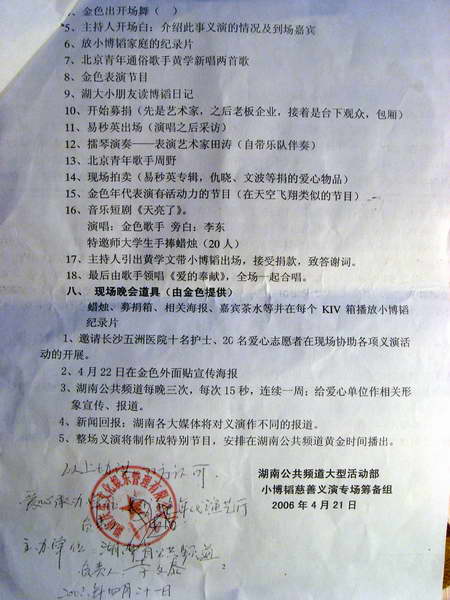 、金色出开场舞（ ）
5、主持人开场白：介绍此事义演的情况及到场嘉宾
6、放小博韬家庭的纪录片
7、北京青年通俗歌手黄学新唱两首歌
8、金色表演节目
9、湖大小朋友读博韬日记
10、开始募捐（先是艺术家，之后老板企业，接着是台下观众，包厢）
11、易秒英出场（演唱之后采访）
12、擂琴演奏——表演艺术家田涛（自带乐队伴奏）
13、北京青年歌手周野
14、现场拍卖（易秒英专辑，仇晓、文波等捐的爱心物品）
15、金色年代表演有活动力的节目（在天空飞翔类似的节目）
16、音乐短剧《天亮了》。
演唱：金色歌手 旁白：李东
特邀师大学生手捧蜡烛（20人）
17、主持人引出黄学文带小博韬出场，接受捐款，致答谢词。
18、最后由歌手领唱《爱的奉献》，全场一起合唱。
八、 现场晚会道具（由金色提供）
蜡烛、募捐箱、相关海报、嘉宾茶水等并在每个 KIV 箱播放小博韬
纪录片
1、邀请长沙五洲医院十名护士、20名爱心志愿者在现场协助各项义演活
动的开展。
2、4月22日在金色外面贴宣传海报
3、湖南公共频道每晚三次，每次15秒，连续一周：给爱心单位作相关形
象宣传、报道。
4、新闻回报：湖南各大媒体将对义演作不同的报道。
5、整场义演将制作成特别节目，安排在湖南公共频道黄金时间播出。
湖南公共频道大型活动部
小博韬慈善义演专场筹备组
2006年4月21日
以上协议 双方认可
爱心承办 年代演艺厅
主办单位：湖南公共频道
负责人